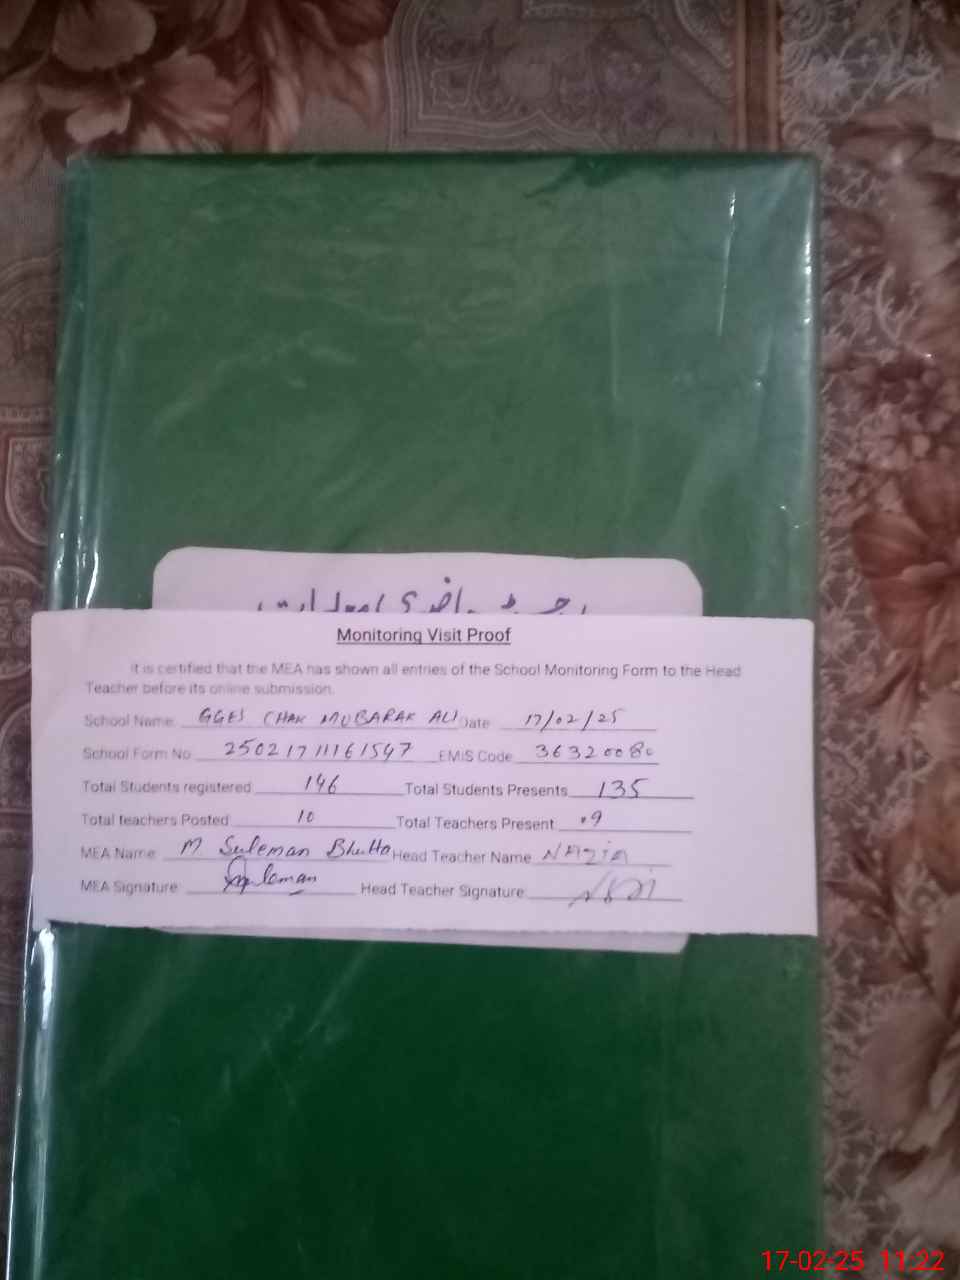 رجسٹر حاضری
Monitoring Visit Proof
It is certified that the MEA has shown all entries of the School Monitoring Form to the Head
Teacher before its online submission.
School Name: GGES CHAK MUBARAK ALI Date 17/02/25
School Form No 25021711161547 EMIS Code 36320080
Total Students registered 146 Total Students Presents 135
Total teachers Posted 10 Total Teachers Present 09
MEA Name: M Suleman Bhutta Head Teacher Name NAZIA
MEA Signature Suleman Head Teacher Signature:
17-02-25 11:22